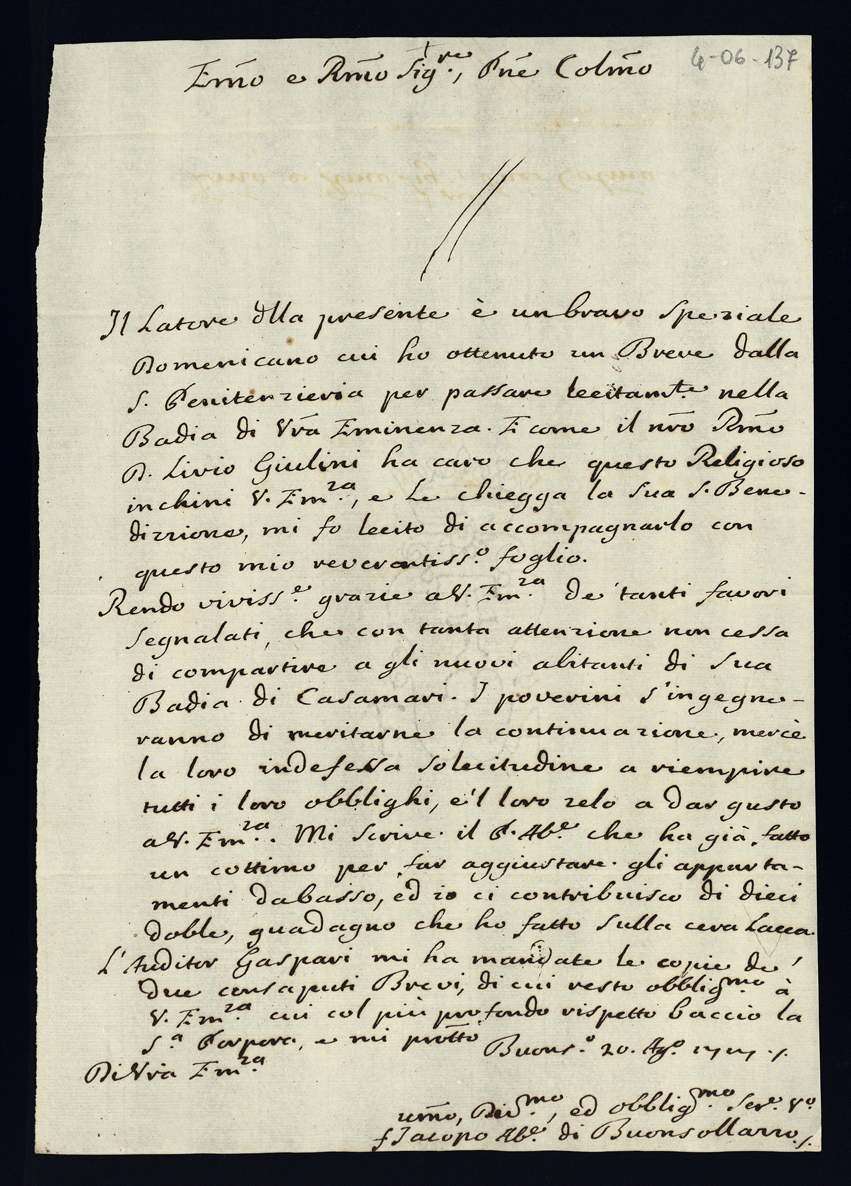 4-06-137
Em̃o e Rm̃o Sig.re, Pñe Colm̃o
Il Latore dlla presente è un bravo Speziale
Domenicano cui ho ottenuto un Breve dalla
S. Penitenzieria per passare lecitamt.e nella
Badia di Vrã Eminenza. E come il nrõ Rm̃o
D. Livio Giulini ha caro che questo Religioso
inchini V. Em.za, e Le chiegga la sua S. Bene-
dizzione, mi fo lecito di accompagnarlo con
questo mio reverentiss.o foglio.
Rendo viviss.e grazie a V. Em.za de' tanti favori
segnalati, che con tanta attenzione non cessa
di compartire a gli nuovi abitanti di sua
Badia di Casamari. I poverini s'ingegne-
ranno di meritarne la continuazione, mercè
la loro indefessa solecitudine a riempire
tutti i loro obblighi, e'l loro zelo a dar gusto
a V. Em.za. Mi scrive il P. Ab.e che ha già fatto
un cottimo per far aggiustare gli apparta-
menti dabasso, ed io ci contribuisco di dieci
doble, guadagno che ho fatto sulla cera Lacca.
L'Auditor Gaspari mi ha mandate le copie de'
due consaputi Brevi, di cui resto obblig.mo à
V. Em.za cui col più profondo rispetto baccio la
S.a Porpora, e mi protto
Buons.o 20. Ag.o 1717.
Di Vrã Em.za
um̃o, Div.mo, ed obblig.mo Ser.e V.o
f Iacopo Ab.e di Buonsollazzo.